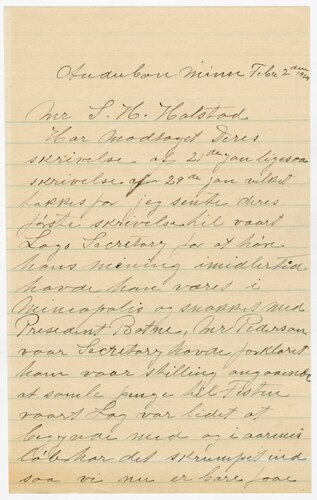 Audubon Minn Febr 2den
Mr S. H. Holstad
Har modtaget Deres
skrivelse af 21de jan ligesaa
skrivelse af 29de jan vilket
takkes for jeg sente deres
første skrivelse til vaart
Lags Secretary for at høre
hans mening imidlertid
havde han været i
Mineapolis og snakket med
President Bothne, Mr Pederson
vaar Secretary havde forklaret
ham vaar stilling angaaende
at samle penge til Festen
vaart Lag var lidet at
begynde med og i aarenes
løb har det skrumpet ind
saa vi nu er bare faa